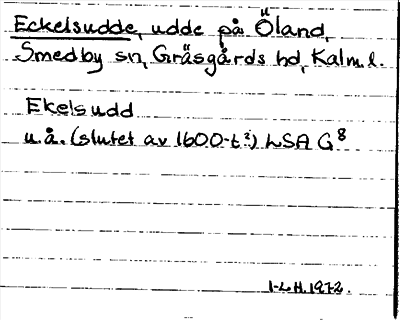 Eckelsudde, udde på Öland,
Smedby sn, Gräsgårds hd, Kalm.l.
Ekelsudd
u.å. (slutet av 1600-t?) LSA G8
I-L H. 1972.